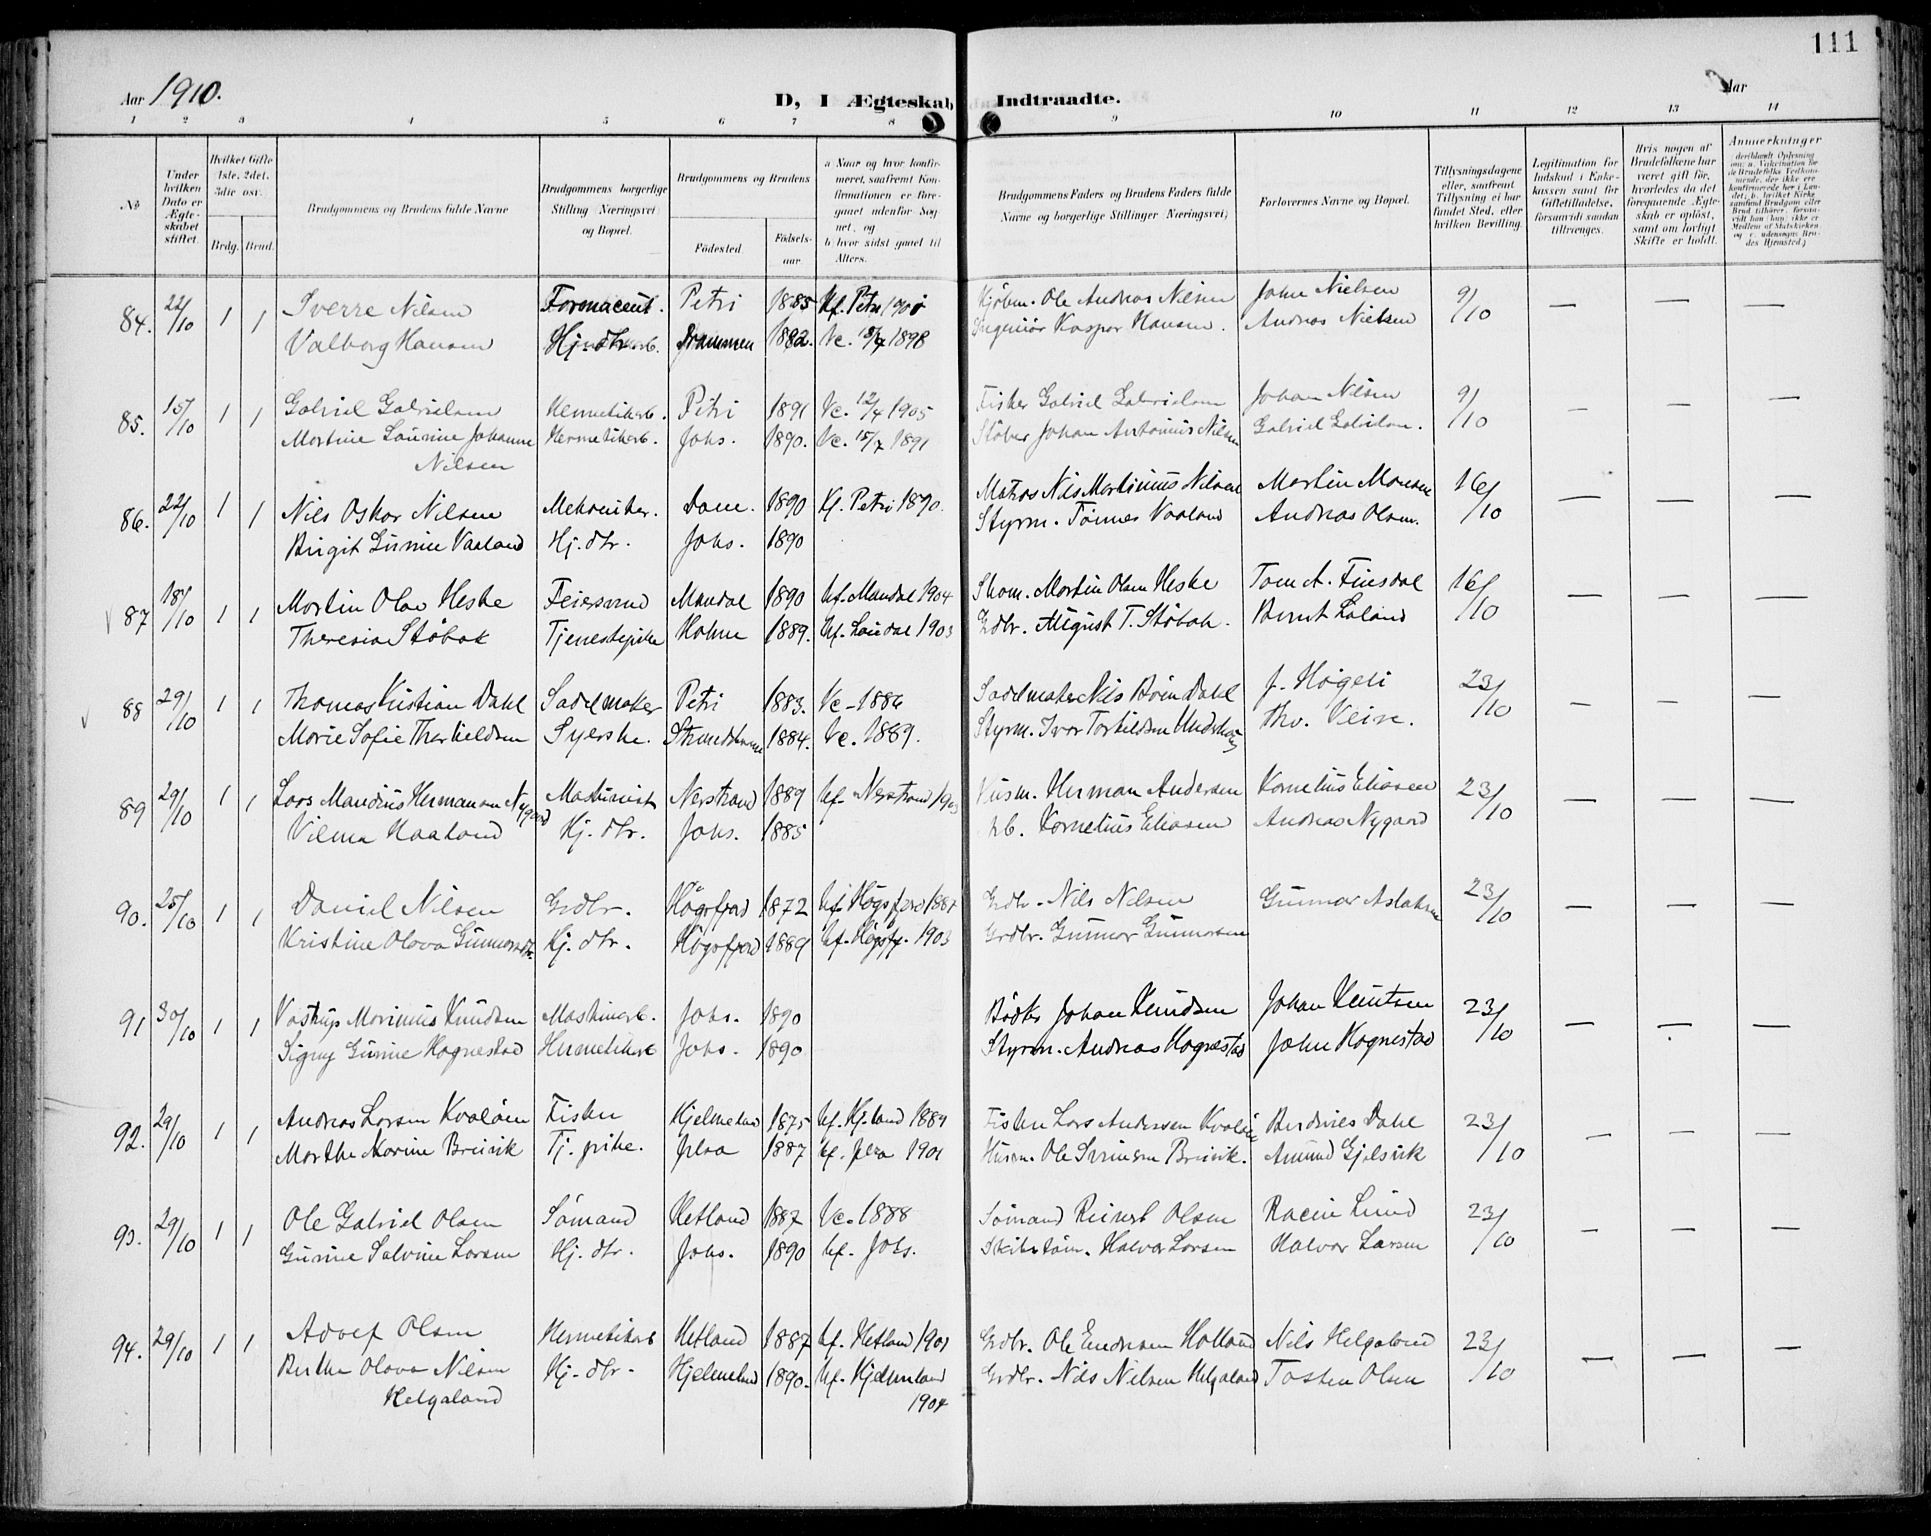 111
Aar 1910.
D, I Ægteskab Indtraadte.
Aar
1 2 3 4 5 6 7 8 9 10 11 12 13 14
No
Under hvilken Dato er Ægteskabet stiftet.
Hvilket Gifte 1ste, 2det, 3die osv.
Brdg. Brud.
Brudgommens og Brudens fulde Navne
Brudgommens borgerlige Stilling Næringsvei og Bopæl.
Brudgommens og Brudens
Fødested. Fødselsaar
a Naar og hvor konfirmeret, saafremt Konfirmationen er foregaaet udenfor Sognet, og b. hvor sidst gaaet til Alters.
Brudgommens Faders og Brudens Faders fulde Navne og borgerlige Stillinger Næringsvei;
Forlovernes Navne og Bopæl.
Tillysningsdagene eller, saafremt Tillysning ei har fundet Sted, efter hvilken Bevilling.
Legitimation for Indskud i Enkekassen samt for Giftetilladelse, forsaavidt saadan tiltrænges.
Hvis nogen af Brudefolkene har været gift før, hvorledes da det foregaaende Ægteskab er opløst, samt om lovligt Skifte er holdt.
Anmerkninger
84. 22/10 1 1 Sverre Nilsen Petri 1885 Kf. Petri Kjøbm. Ole Andreas Nilsen John Nielsen 9/10 — — —
Valborg Hansen Hj. dtr. Drammen 1882. Vc. 1898 Ingeniør Kaspar Hansen. Andreas Nielsen
85. 15/10 1 1 Gabriel Gabrielsen Hermetikarb. Petri 1891 Vc. 12/4 1905 Fisker Gabriel Gabrielsen Johan Nilsen 9/10 — — —
Martine Laurine Johanne Hermetikarb. Johs. 1890. Vc. 15/7 1891 Støber Johan Antonius Nilsen Gabriel Gabrielsen.
Nilsen
86. 22/10 1 1 Nils Oskar Nilsen Mekaniker. Dom. 1890 Kf. Petri 1890. Matros Nils Martinius Nilsen Martin Monsen 16/10 — — —
Birgit Gurine Vaaland Hj. dtr. Johs. 1890 Styrm. Tønnes Vaaland Andreas Olsen.
87 18/10 1 1 Martin Olav Heske Feiersvend Mandal 1890 kf. Mandal 1904 Skom. Martin Olsen Heske Tom A. Finsdal 16/10 — — —
Theresia Støbak Tjenestepike Holme 1889. kf. Laudal 1903 Gdbr. August T. Støbak. Bernt Laland
88 29/10 1 1 Thomas Kristian Dahl Sadelmaker Petri 1883. Vc. 1886 Sadelmaker Nils Dahl J. Høgeli 23/10 — — —
Marie Sofie Therkieldsen Syerske. 1884. Vc. 1889. Styrm. Ivar Torkildsen Thv. Veire.
89 29/10 1 1 Lars Mandius Hermansen Nygaard Maskinist Nerstrand 1889 kf. Nerstrand 1903 Husm. Herman Andersen Kornelius Eliasen 23/10 — — —
Vilma Haaland Hj. dtr. Johs. 1885 Kornelius Eliasen Andreas Nygaard
90. 25/10 1 1 Daniel Nilsen Grdbr. Høgsfjord 1872 kf. Høgsfjord Grdbr. Nils Nilsen Gunnar Aslaksen 23/10 — — —
Kristine Olava Gunnarsdtr. Hj. dtr. Høgsfjord 1889 kf. Høgsfj. 1903 Grdbr. Gunnar Gunnarsen
91 30/10 1 1 Vastrup Marinius Knudsen Maskinarb. Johs. 1890 Bødker Johan Knudsen Johan Knutsen 23/10 — — —
Signy Gurine Hognestad Hermetikarb Johs. 1890 Styrm. Andreas Hognestad John Hognestad
92. 29/10 1 1 Andreas Larsen Kvaløen Fisker Hjelmeland 1875 kf. Hj.land 1889 Fisker Lars Andersen Kvaløen Dahl 23/10 — — —
Marthe Karine Breivik Tj. pike. Jelsa 1887 kf. Jelsa 1901 Husm. Ole Breivik. Amund Gjelsvik
93. 29/10 1 1 Ole Gabriel Olsen Sømand Hetland 1887 Vc. 1888 Sømand Reinert Olsen Lund 23/10 — — —
Gurine Salvine Larsen Hj. dtr. Johs. 1890 kf. Johs. Skibstøm. Halvor Larsen Halvor Larsen
94. 29/10 1 1 Adolf Olsen Hermetikarb Hetland 1887 kf. Hetland 1901 Grdbr. Ole Endresen Holland Nils Helgaland 23/10 — — —
Berthe Olava Nilsen Hj. dtr. Hjelmeland 1890. kf. Hjelmeland Grdbr. Nils Nilsen Helgaland Tosten Olsen
Helgaland 1904